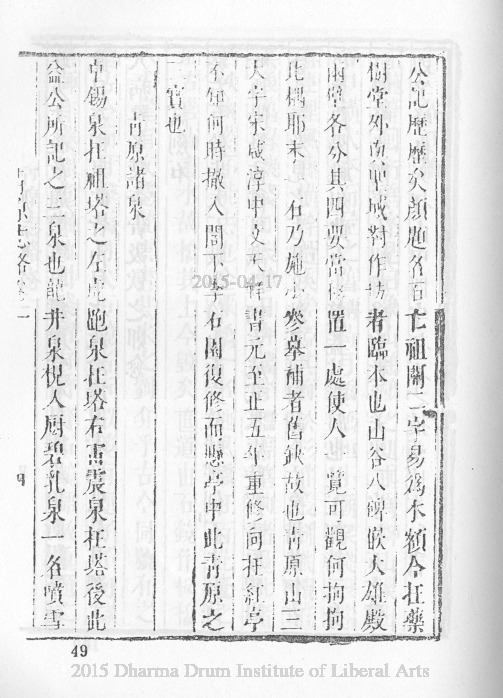 公記歷歷矣顏題名石七祖關二字易為木額今在藥
樹堂外兩甲城對作坊者臨本也山谷八碑嵌大雄殿
兩壁各分其四要當 置一處使人一覽可觀何拘拘
此橋耶末 石乃 參墓補者舊缺故也青原山三
大字宋咸淳中文天祥書元至正五年重修向在紅亭
不知何時撤入閣下 石園復修而懸亭中此青原之
一實也
青原諸泉
卓錫泉在祖塔之左虎跑泉在塔右雷震泉在塔後此
益公所記之三泉也龍井泉梘入廚碧乳泉一名噴雪
青原志略卷一
四
49
2015-04-17
2015 Dharma Drum Institute of Liberal Arts